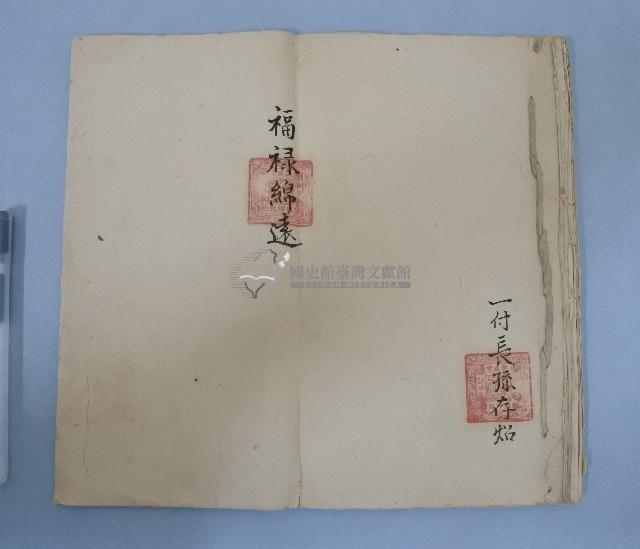 一付長孫存炤
福祿綿遠
國史館臺灣文獻館
TAIWAN HISTORICA